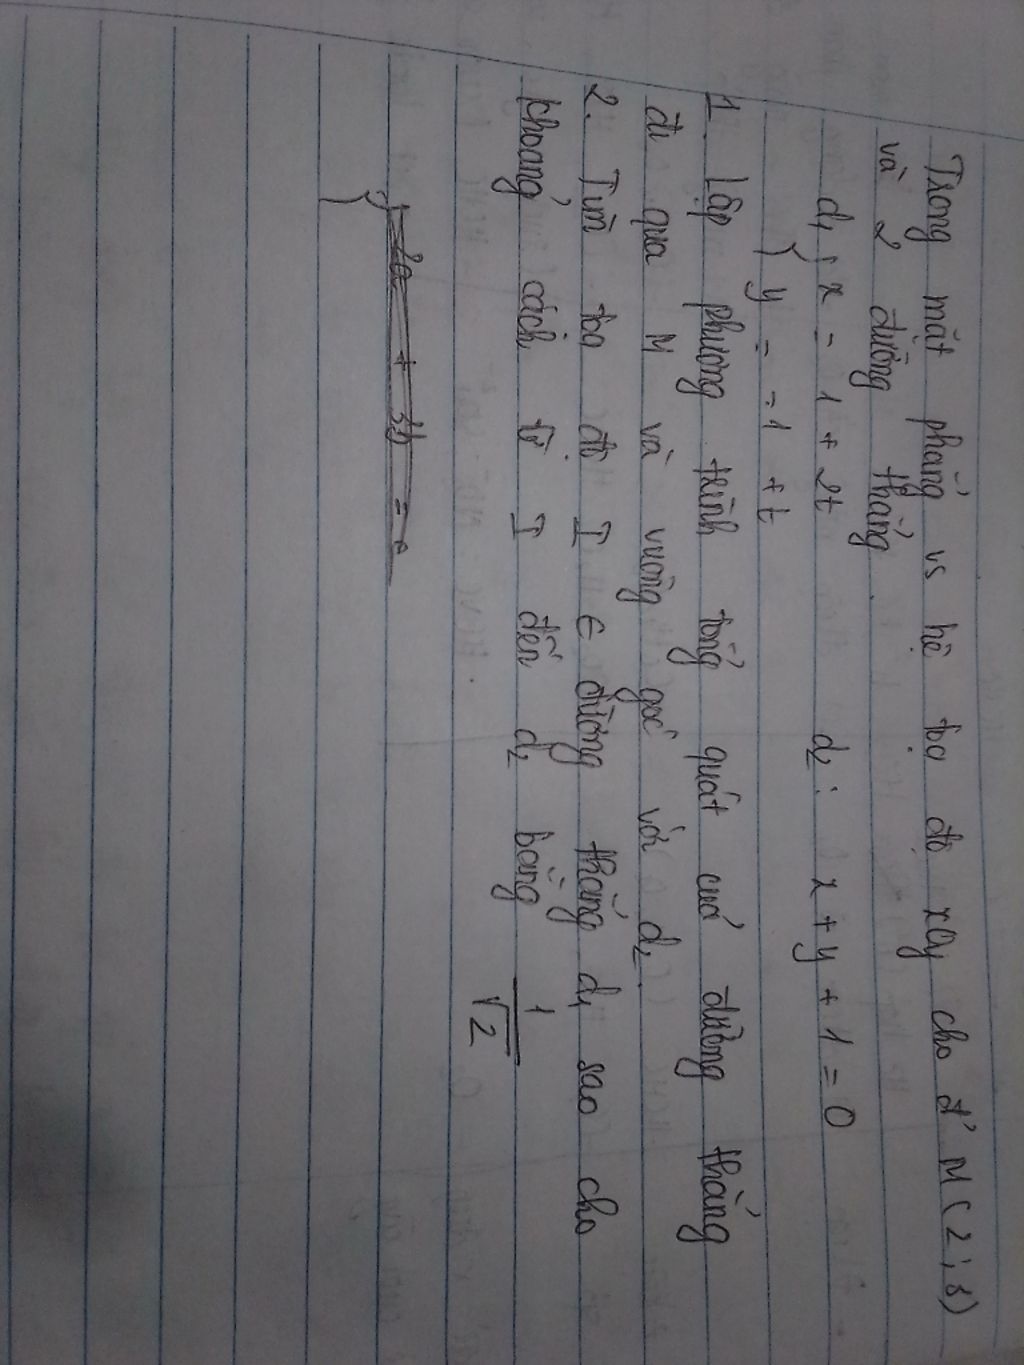 Trong mặt phẳng vs hệ tọa độ xOy cho đ' M(2;8)
và 2 đường thẳng
d₁ { x = 1 + 2t d₂: x + y + 1 = 0
{ y = -1 + t
1. Lập phương trình tổng quát của đường thẳng
đi qua M và vuông góc với d₂
2. Tìm tọa độ I ∈ đường thẳng d₁ sao cho
khoảng cách từ I đến d₂ bằng 1/√2
2a + 3b =